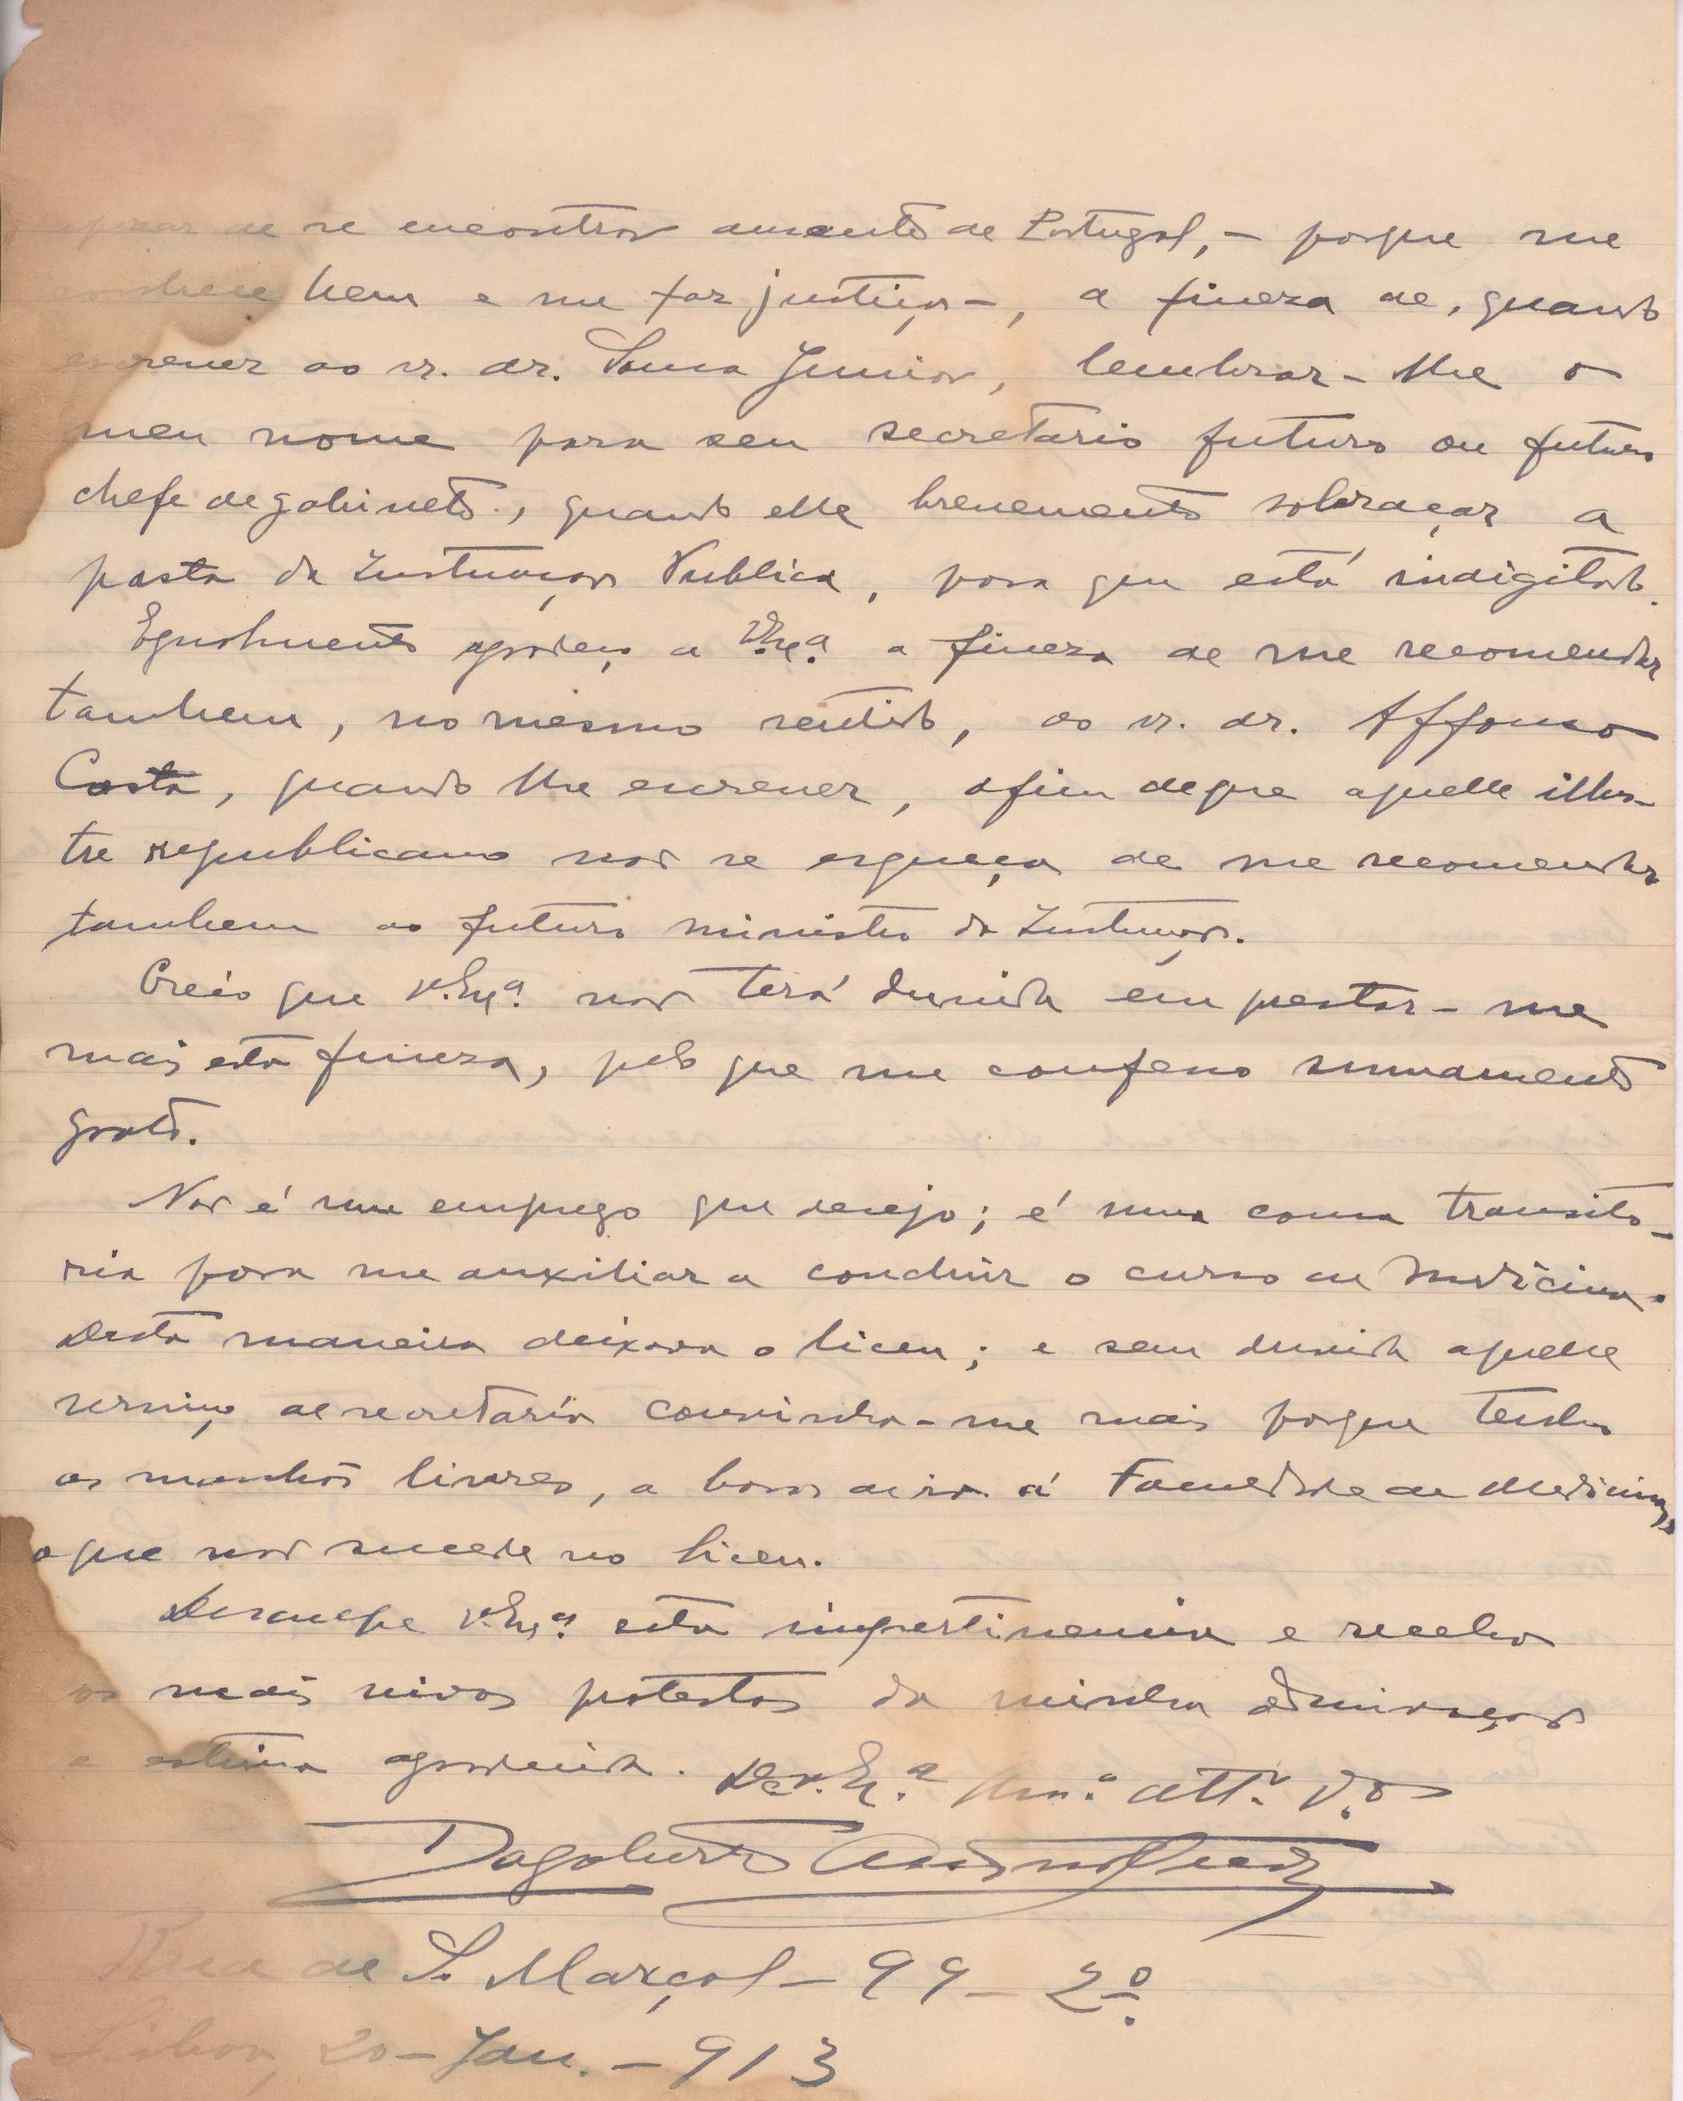 apezar de se encontrar ausente de Portugal, – porque me
conhece bem e me faz justiça –, a fineza de, quando
escrever ao sr. dr. Sousa Junior, lembrar-lhe o
meu nome para seu secretario futuro ou futuro
chefe de gabinete, quando elle brevemente sobraçar a
pasta da Instrução Publica, para que está indigitado.
Egualmente agradeço a V. Exª. a fineza de me recomendar
tambem, no mesmo sentido, ao sr. dr. Affonso
Costa, quando lhe escrever, afim de que aquelle illus-
tre republicano não se esqueça de me recomendar
tambem ao futuro ministro da Instrução.
Creio que v. Exª. não terá duvida em prestar-me
mais esta fineza, pelo que me confesso summamente
grato.
Não é um emprego que desejo; é uma cousa transito-
ria para me auxiliar a concluir o curso de Medicina.
Desta maneira deixava o liceu; e sem duvida aquelle
serviço de secretaria convinha-me mais porque tenho
as manhãs livres, a horas de ir á Faculdade de Medicina,
o que não sucede no liceu.
Desculpe v. Exª. esta impertinencia e receba
os mais vivos protestos da minha admiração
e estima agradecida. De v. Exª. Amº. attº. V. or
Dagoberto
Rua de S. Marçal – 99 – 2º.
Lisboa, 20 – Jan. – 913